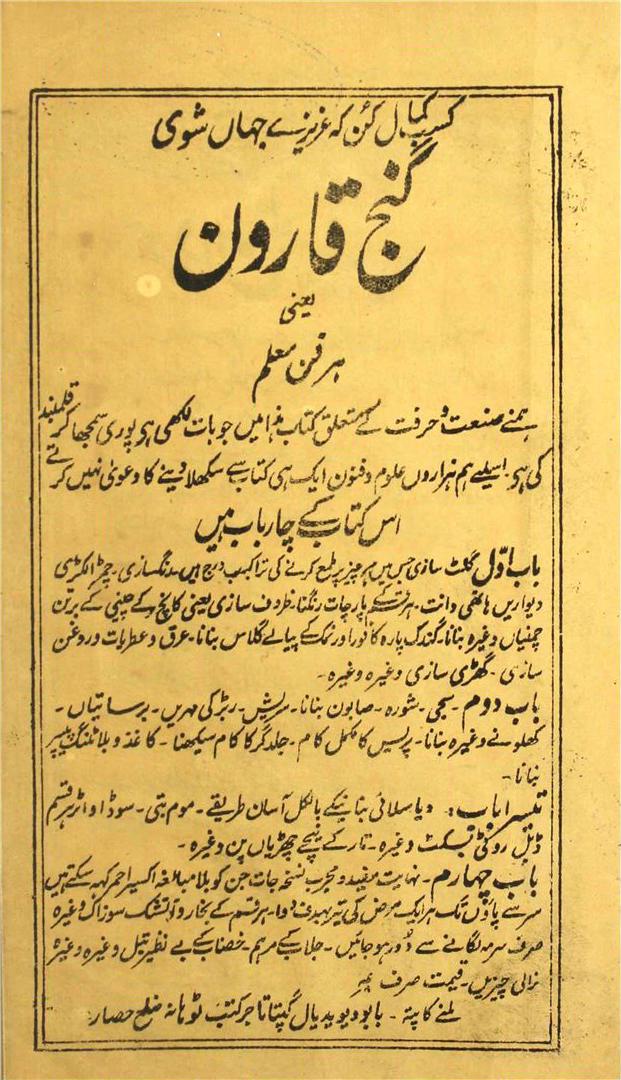 کسب کمال کن کہ عزیزے جہاں شوی
گنج قارون
یعنی
ہر فن معلم
ہمنے صنعت و حرفت کے متعلق کتاب ہذا میں جو بات لکھی ہو پوری سمجھا کر قلمبند
کی ہو۔ اسیلیے ہم ہزاروں علوم و فنون ایک ہی کتاب سے سکھلا دینے کا دعویٰ نہیں کرتے
اس کتاب کے چار باب ہیں
باب اوّل گلٹ سازی جس میں ہر چیز پر ملمع کرنے کی تراکیب درج ہیں۔ رنگسازی۔ چمڑا لکڑی
دیواریں ہاتھی دانت۔ ہر قسم کے پارچات رنگنا۔ ظروف سازی یعنی کانچ کے چینی کے برتن
چمنیاں وغیرہ بنانا۔ گندک پارہ کافور اور نمک کے پیالے گلاس بنانا۔ عرق و عطریات و روغن
سازی۔ گھڑی سازی وغیرہ وغیرہ۔
باب دوم۔ سجی۔ شورہ۔ صابون بنانا۔ سریش۔ ربڑ کی مہریں۔ برساتیاں۔
کھلونے وغیرہ بنانا۔ پریس کا مکمل کام۔ جلد گر کا کام سیکھنا۔ کاغذ و بلاٹنگ پیپر
بنانا۔
تیسرا باب۔ دیا سلائی بنانیکے بالکل آسان طریقے۔ موم بتی۔ سوڈا واٹر ہر قسم
ڈبل روٹی بسکٹ وغیرہ۔ تار کے پنجے چھڑیاں پن وغیرہ۔
باب چہارم۔ نہایت مفید و مجرب نسخہ جات جن کو بلا مبالغہ اکسیر احمر کہہ سکتے ہیں
سر سے پاؤں تک ہر ایک مرض کی تیر بہدف دوا۔ ہر قسم کے بخار و آتشک سوزاک وغیرہ
صرف سرمہ لگانے سے دور ہو جائیں۔ جلاب کے مرہم۔ خضاب کے بے نظیر تیل وغیرہ وغیرہ
نرالی چیزیں۔ قیمت صرف
ملنے کا پتہ۔ بابو دیوید یال گپتا تاجر کتب ٹوہانہ ضلع حصار